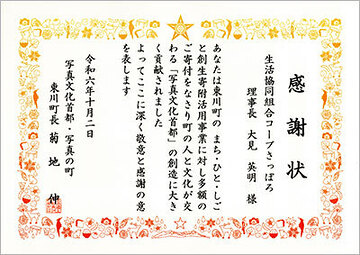 感謝状
生活協同組合コープさっぽろ
理事長 大見 英明 様
あなたは東川町のまち・ひと・しご
と創生寄附活用事業に対し多額の
ご寄付をなさり町の人と文化が交
わる「写真文化首都」の創造に大き
く貢献されました
よってここに深く敬意と感謝の意
を表します
令和六年十月二日
写真文化首都・写真の町
東川町長 菊地 伸